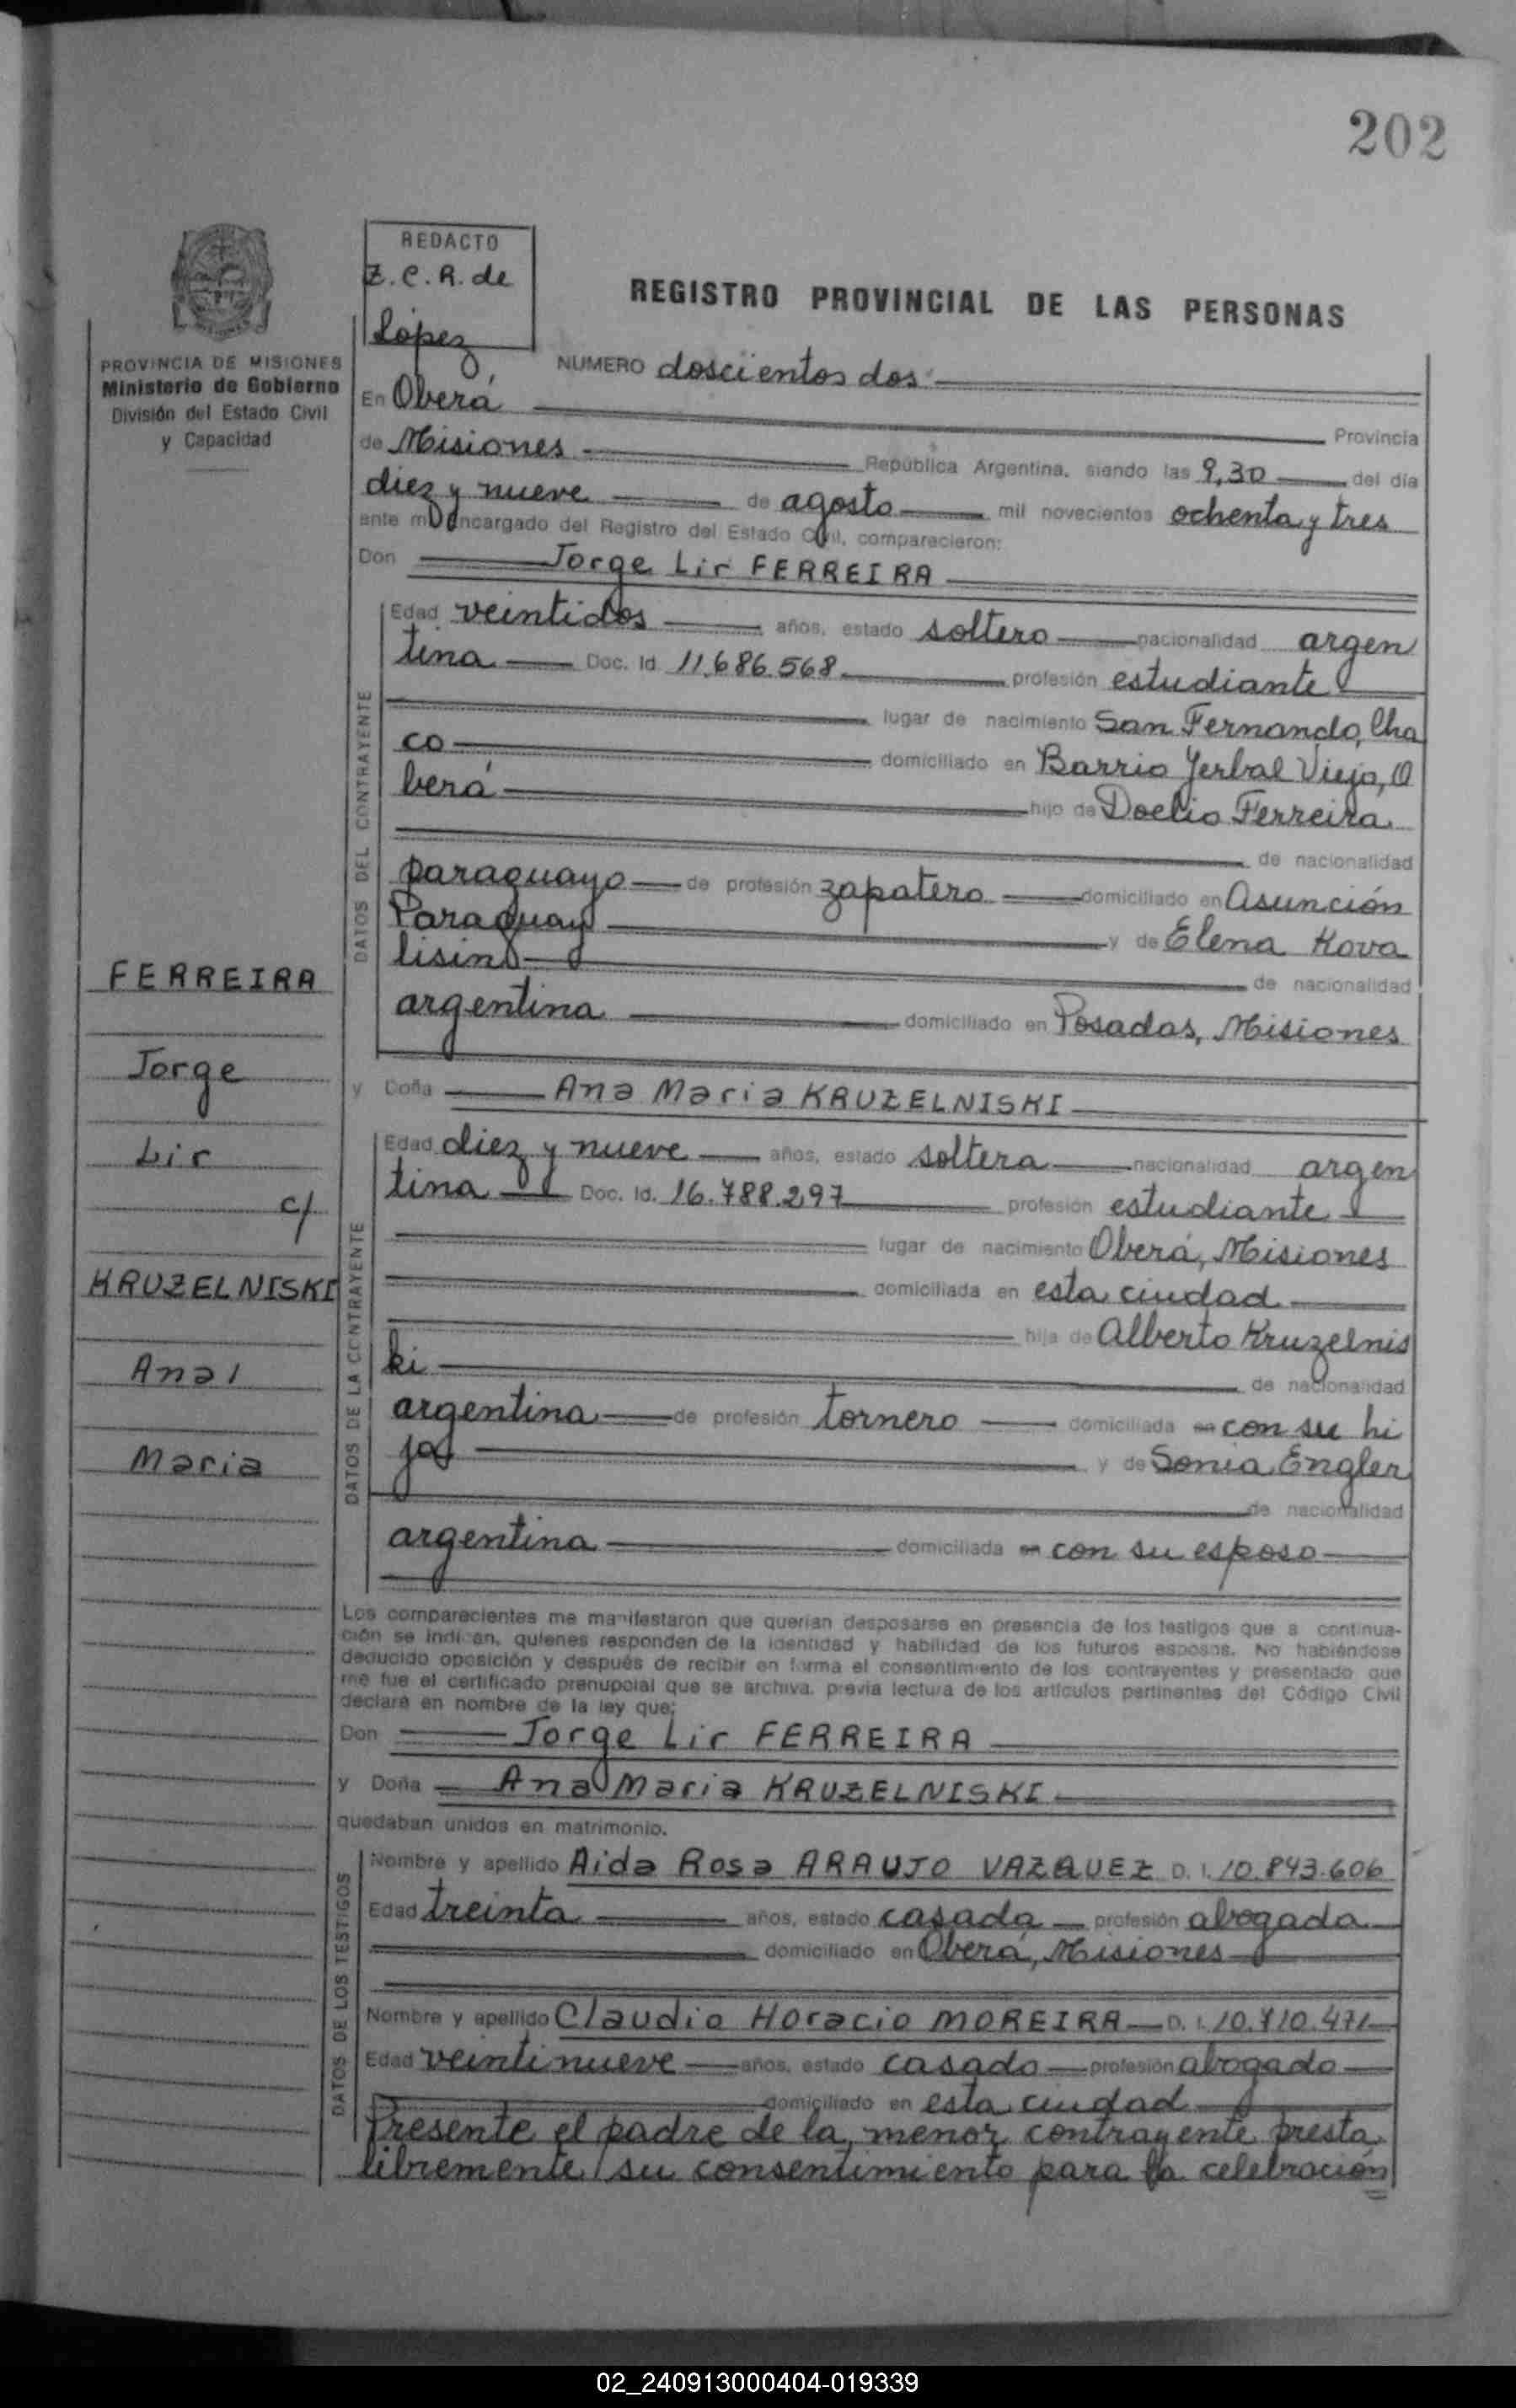 202
REDACTO
Z.C.R. de
López
REGISTRO PROVINCIAL DE LAS PERSONAS
PROVINCIA DE MISIONES
Ministerio de Gobierno
División del Estado Civil
y Capacidad
NUMERO doscientos dos
En Oberá
Provincia
de Misiones República Argentina, siendo las 9,30 del día
diez y nueve de agosto mil novecientos ochenta y tres
ante mí Encargado del Registro del Estado Civil, comparecieron:
Don Jorge Lir FERREIRA
DATOS DEL CONTRAYENTE
Edad veintidos años, estado soltero nacionalidad argen
tina Doc. Id. 11.686.568 profesión estudiante
lugar de nacimiento San Fernando, Cha
co domiciliado en Barrio Yerbal Viejo, O
berá hijo de Doelio Ferreira
de nacionalidad
paraguayo de profesión zapatero domiciliado en Asunción
Paraguay y de Elena Kova
lisin
de nacionalidad
argentina domiciliado en Posadas, Misiones
y Doña Ana Maria KRUZELNISKI
DATOS DE LA CONTRAYENTE
Edad diez y nueve años, estado soltera nacionalidad argen
tina Doc. Id. 16.788.297 profesión estudiante
lugar de nacimiento Oberá, Misiones
domiciliada en esta ciudad
hija de Alberto Kruzelnis
ki de nacionalidad
argentina de profesión tornero domiciliada en con su hi
ja y de Sonia Engler
de nacionalidad
argentina domiciliada en con su esposo
Los comparecientes me manifestaron que querían desposarse en presencia de los testigos que a continua-
ción se indican, quienes responden de la identidad y habilidad de los futuros esposos. No habiéndose
deducido oposición y después de recibir en forma el consentimiento de los contrayentes y presentado que
me fue el certificado prenupcial que se archiva, previa lectura de los artículos pertinentes del Código Civil
declaré en nombre de la ley que:
Don Jorge Lir FERREIRA
y Doña Ana Maria KRUZELNISKI
quedaban unidos en matrimonio.
DATOS DE LOS TESTIGOS
Nombre y apellido Aida Rosa ARAUJO VAZQUEZ D. I. 10.843.606
Edad treinta años, estado casada profesión abogada
domiciliado en Oberá, Misiones
Nombre y apellido Claudio Horacio MOREIRA D. I. 10.710.471
Edad veintinueve años, estado casado profesión abogado
domiciliado en esta ciudad
Presente el padre de la menor contrayente presta
libremente su consentimiento para la celebración
FERREIRA
Jorge
Lir
c/
KRUZELNISKI
Ana
Maria
02_240913000404-019339